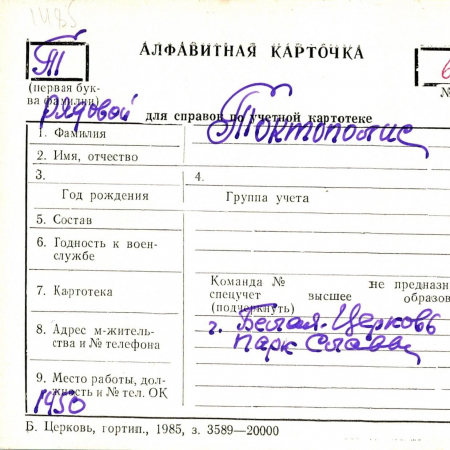 1485
АЛФАВИТНАЯ КАРТОЧКА
Т
6
(первая бук-
ва фамилии)
№
рядовой для справок по учетной картотеке
1. Фамилия Токтополис
2. Имя, отчество
3. 4.
Год рождения Группа учета
5. Состав
6. Годность к воен-
службе
Команда № не предназн
7. Картотека спецучет высшее образов
(подчеркнуть)
8. Адрес м-житель-
ства и № телефона
г. Белая-Церковь
Парк Славы
9. Место работы, дол-
жность и № тел. ОК
1450
Б. Церковь, гортип., 1985, з. 3589—20000